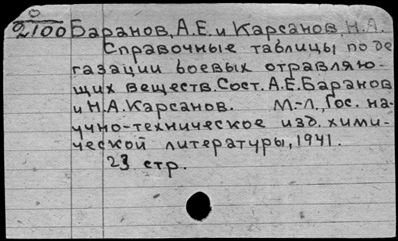 О
2100 Баранов, А.Е. и Карсанов, Н.А.
Справочные таблицы по де
газации боевых отравляю-
щих веществ. Сост. А.Е. Баранов
и Н.А. Карсанов. М.-Л., Гос. на-
учно-техническое изд. хими-
ческой литературы, 1941.
23 стр.